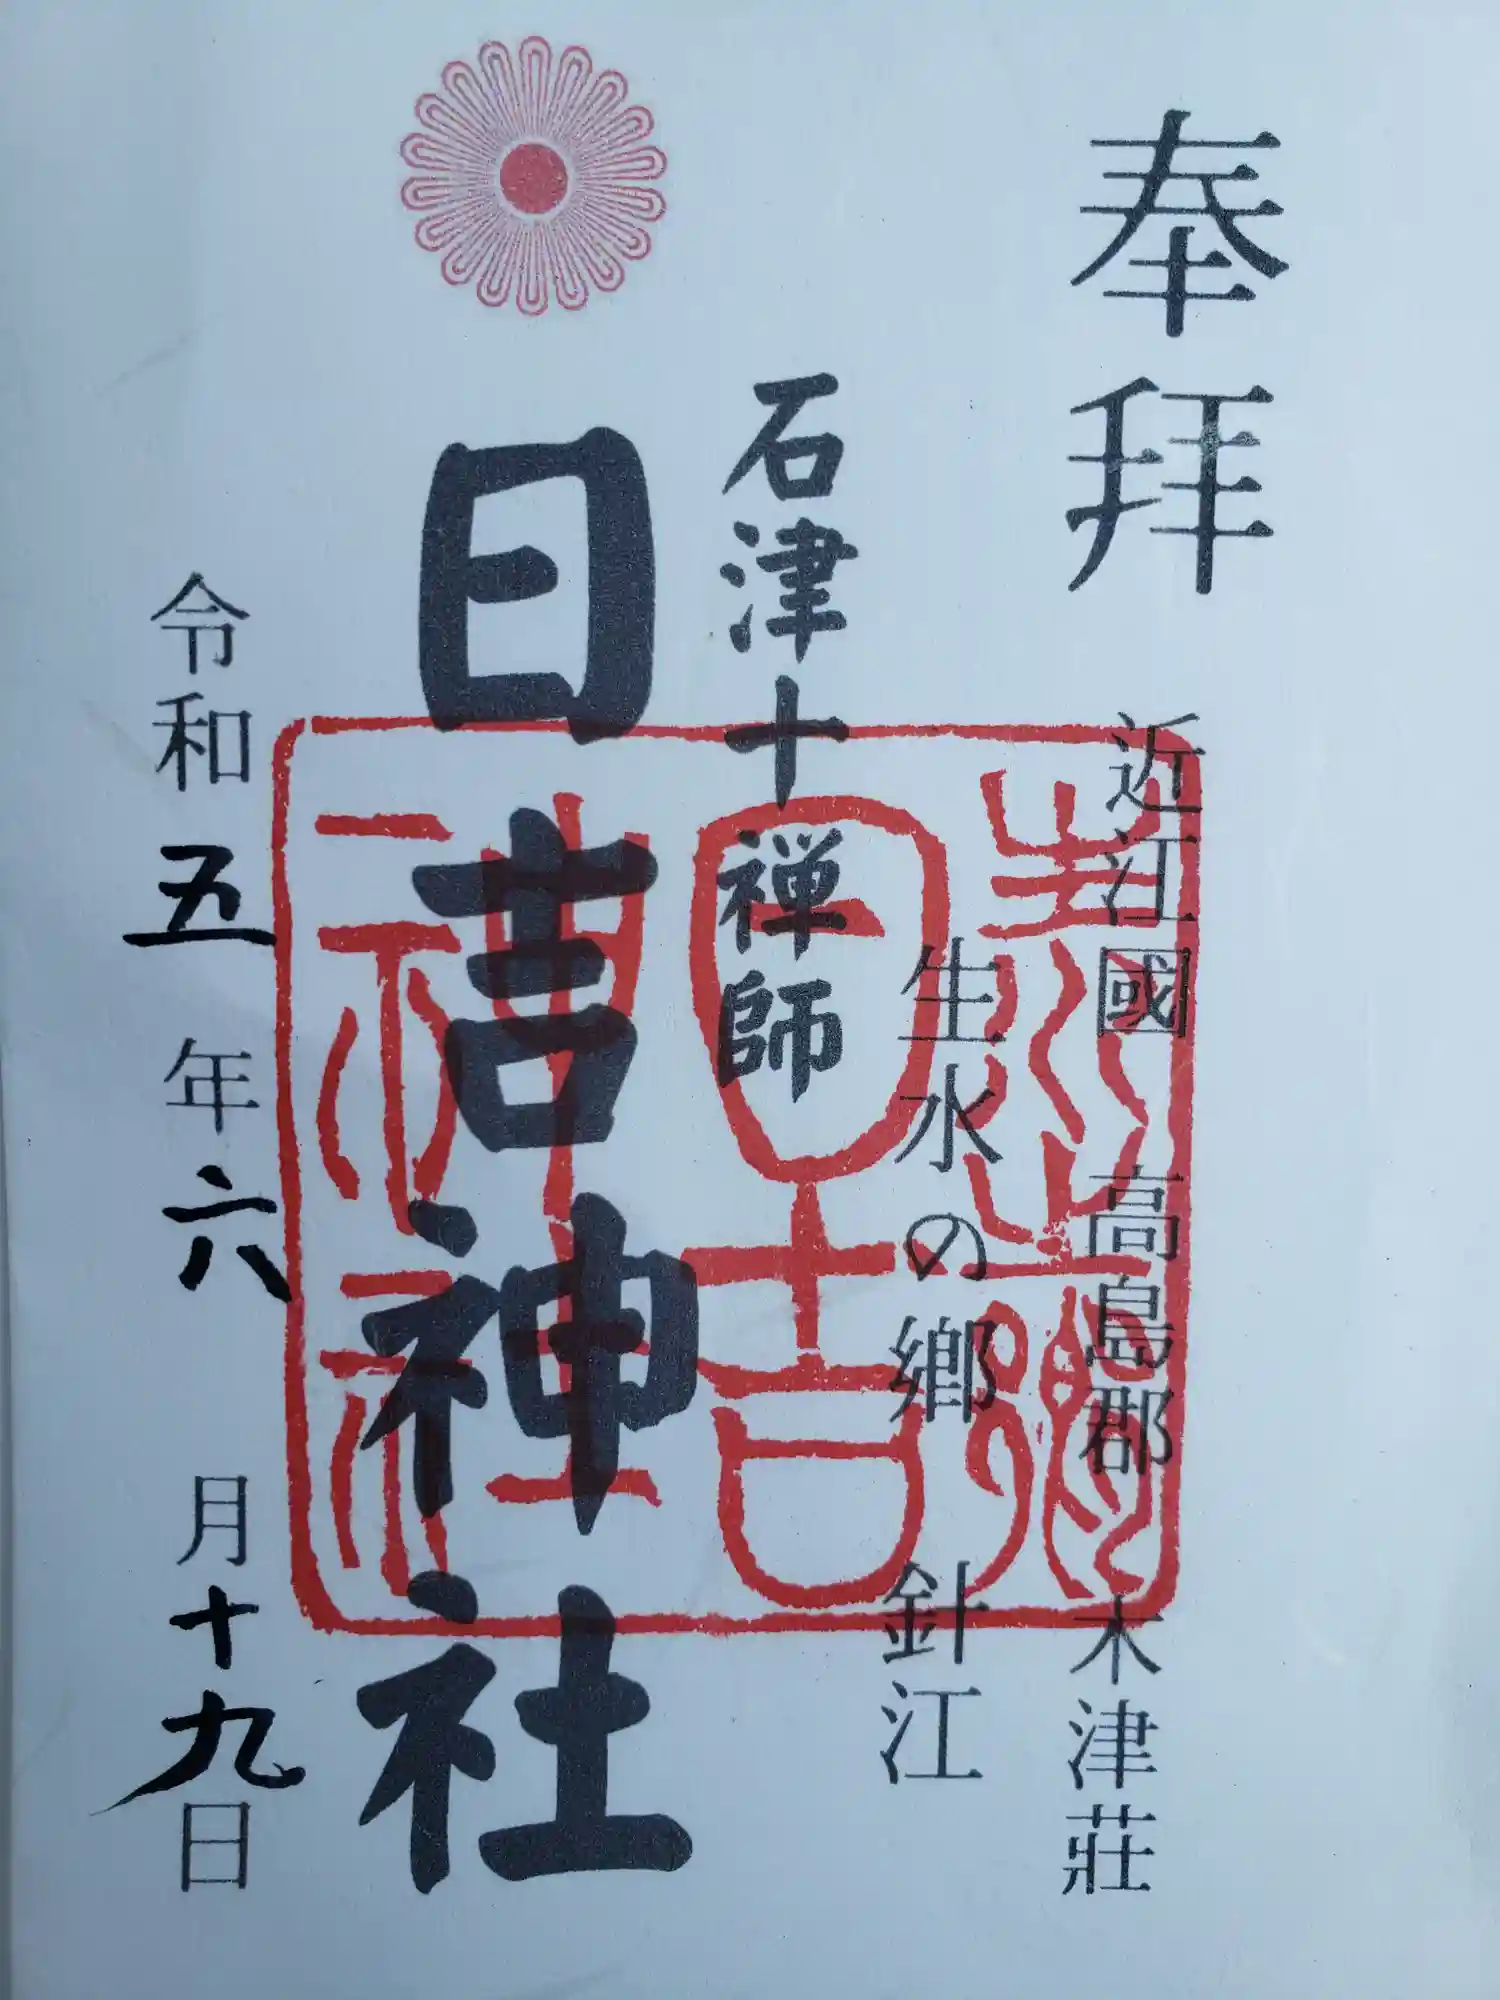 奉拝
近江國 高島郡 木津莊
生水の鄉 針江
石津十禅師
日吉神社
令和五年六月十九日